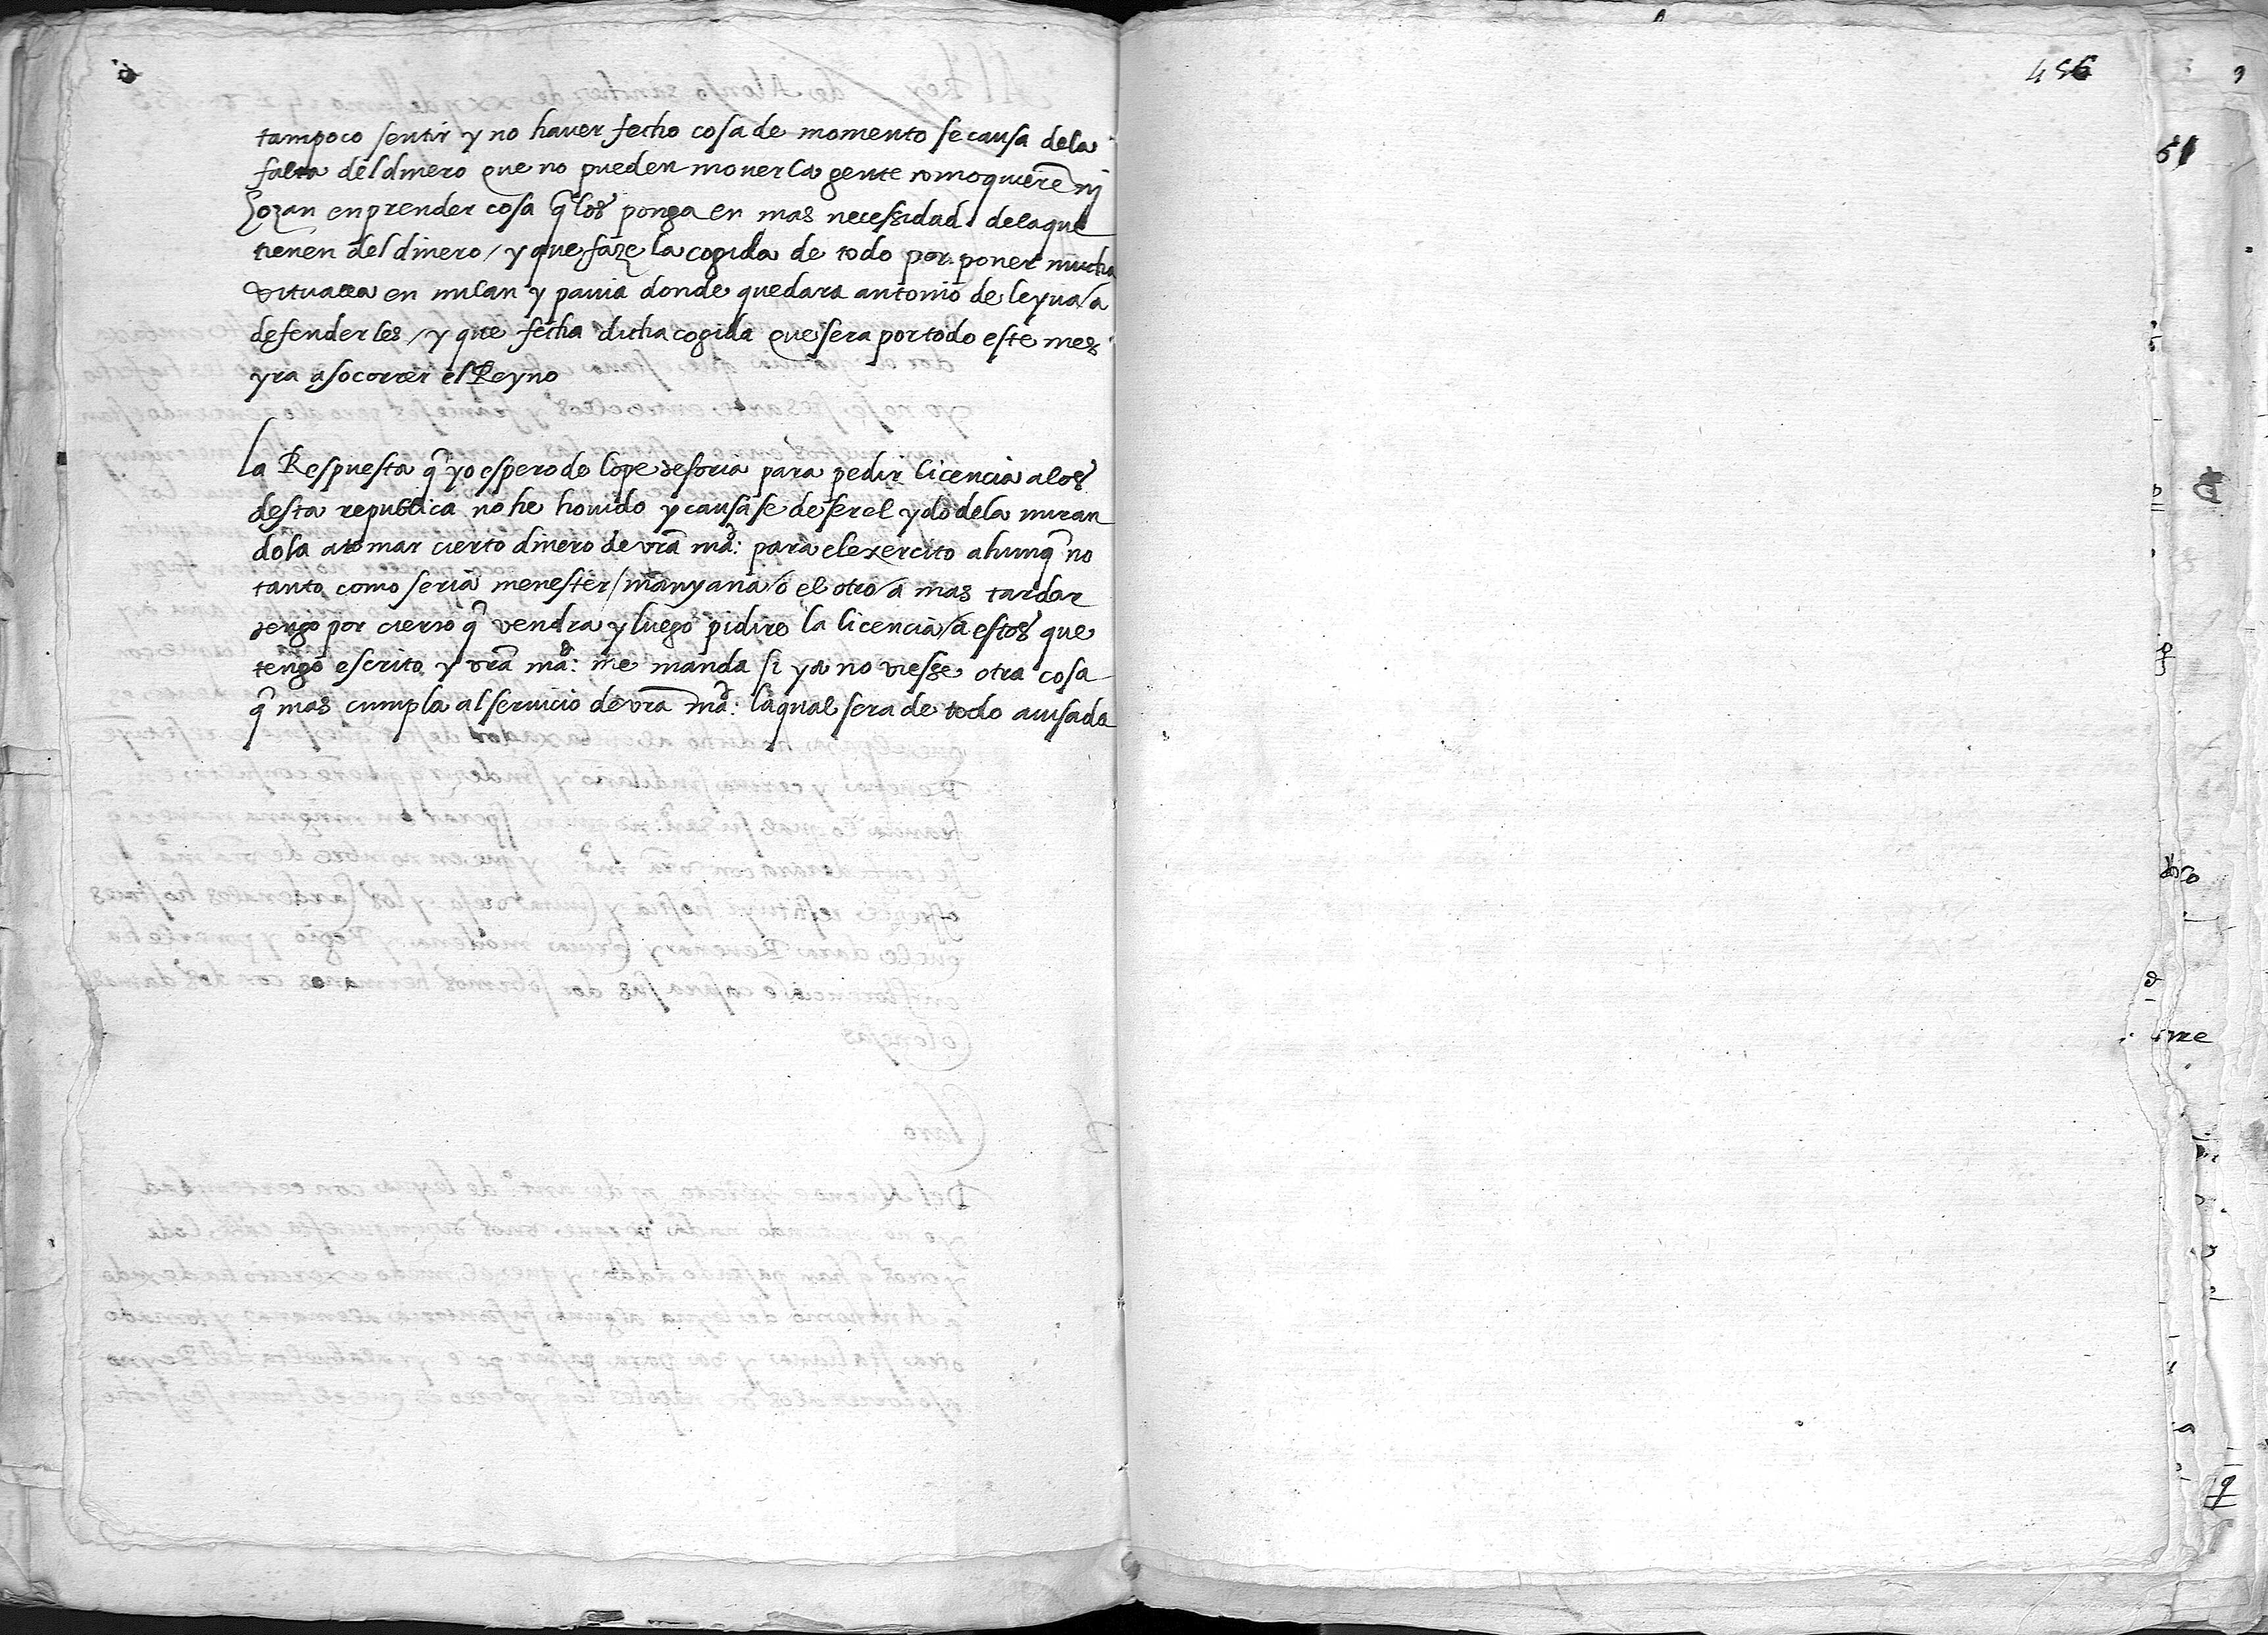 456
tampoco sentir y no hauer fecho cosa de momento se causa dela
falta del dinero que no pueden mouer la gente como quierē nj
Hozan enprender cosa q̄ los ponga en mas necessidad dela que
tienen del dinero / y que faze la cogida de todo por poner mucha
vitualla en milan y pauia donde quedara antonio de leyua / a
defenderles / y que fecha dicha cogida que sera por todo este mes
yra a socorrer el Reyno
La Respuesta q̄ yo espero de lope de soria para pedir licencia a los
desta republica no he houido y causase de ser el ydo dela miran
dola a tomar cierto dinero de vrā md: para el exercito ahunq̄ no
tanto como seria menester / manyana / o el otro / a mas tardar
tengo por cierto q̄ vendra y luego pidire la licencia / a estos que
tengo escrito y vrā md: me manda si ya no viesse otra cosa
q̄ mas cumpla al seruicio de vrā md: la qual sera de todo auisada